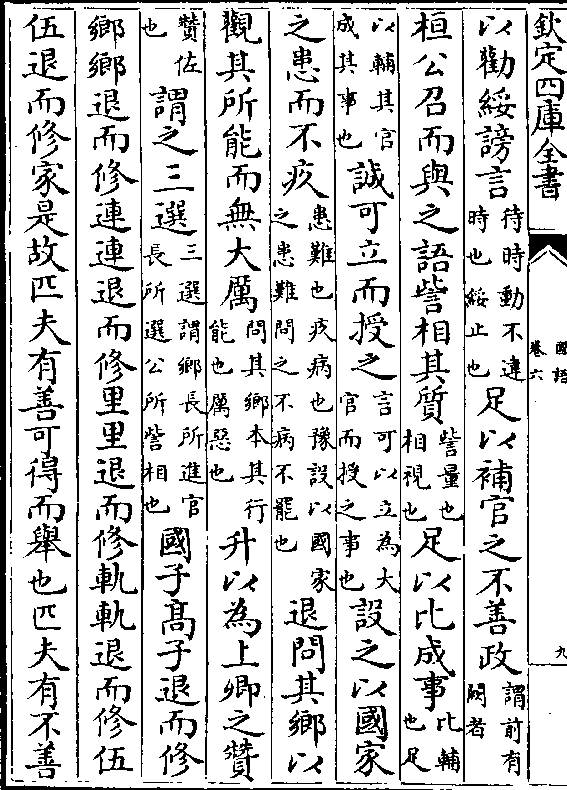 欽定四庫全書
國語
卷六
九
以勸綏謗言待時動不違時也綏止也足以補官之不善政謂前有闕者
桓公召而與之語訾相其質訾量也相視也足以比成事比輔也足
以輔其官成其事也誠可立而授之言可以立為大官而授之事也設之以國家
之患而不疚患難也疚病也豫設以國家之患難問之不病不罷也退問其鄉以
觀其所能而無大厲問其鄉本其行能也厲惡也升以為上卿之贊
贊佐也謂之三選三選謂鄉長所進官長所選公所訾相也國子髙子退而修
鄉鄉退而修連連退而修里里退而修軌軌退而修伍
伍退而修家是故匹夫有善可得而舉也匹夫有不善